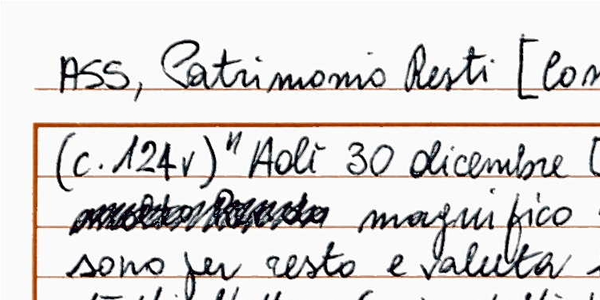 ASS, Patrimonio Resti [Con
(c. 124v) "Adì 30 dicembre [
magnifico
sono per resto e valuta